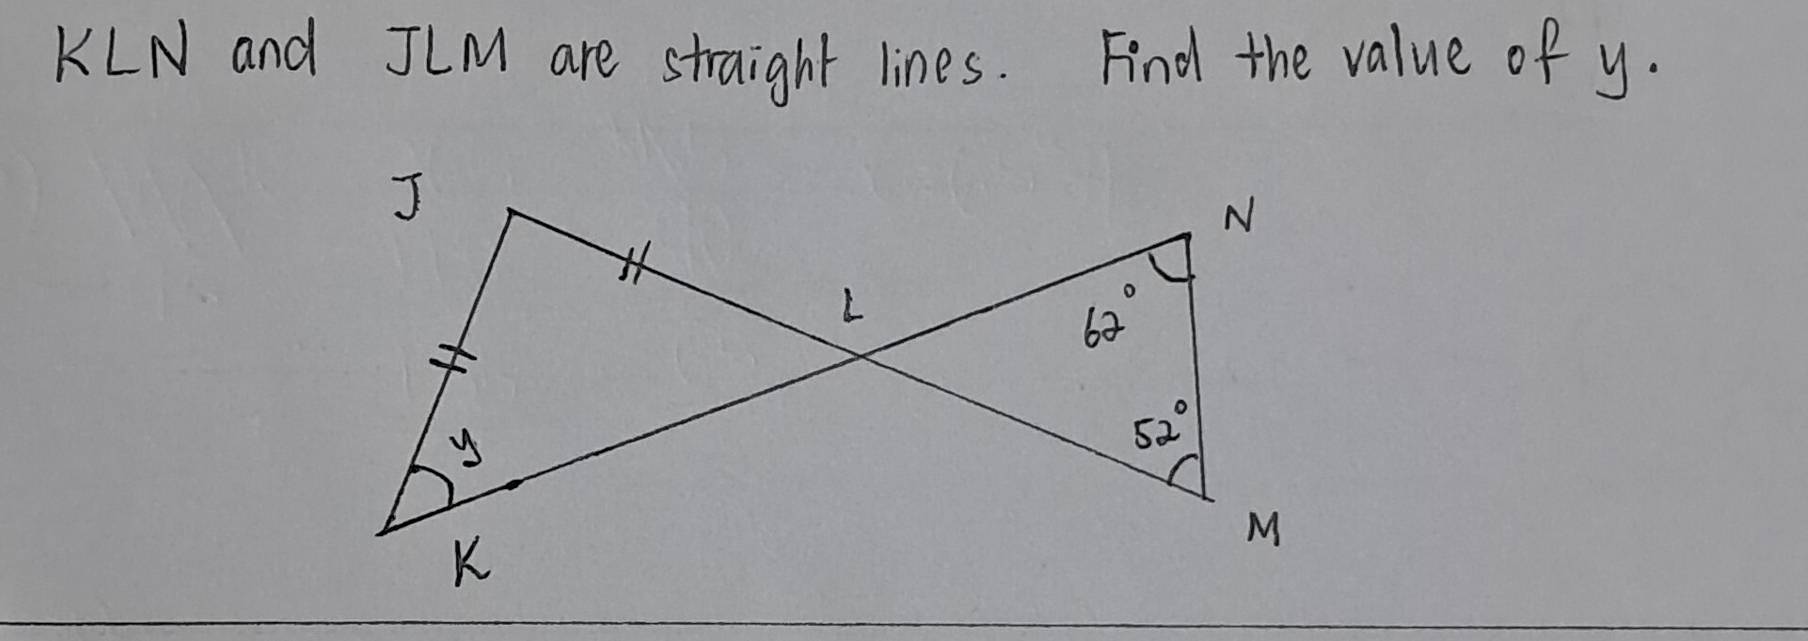 KLN and JLM are straight lines. Find the value of y.
J
N
L
62°
52°
y
K
M